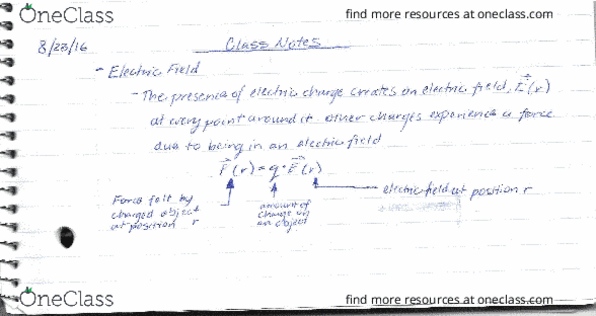 OneClass find more resources at oneclass.com
8/23/16 Class Notes
- Electric Field
- The presence of electric charge creates an electric field, E⃗(r)
at every point around it. other charges experience a force
due to being in an electric field
F⃗(r) = q · E⃗(r)
Force felt by
charged object
at position r
amount of
charge on
an object
electric field at position r
OneClass find more resources at oneclass.com